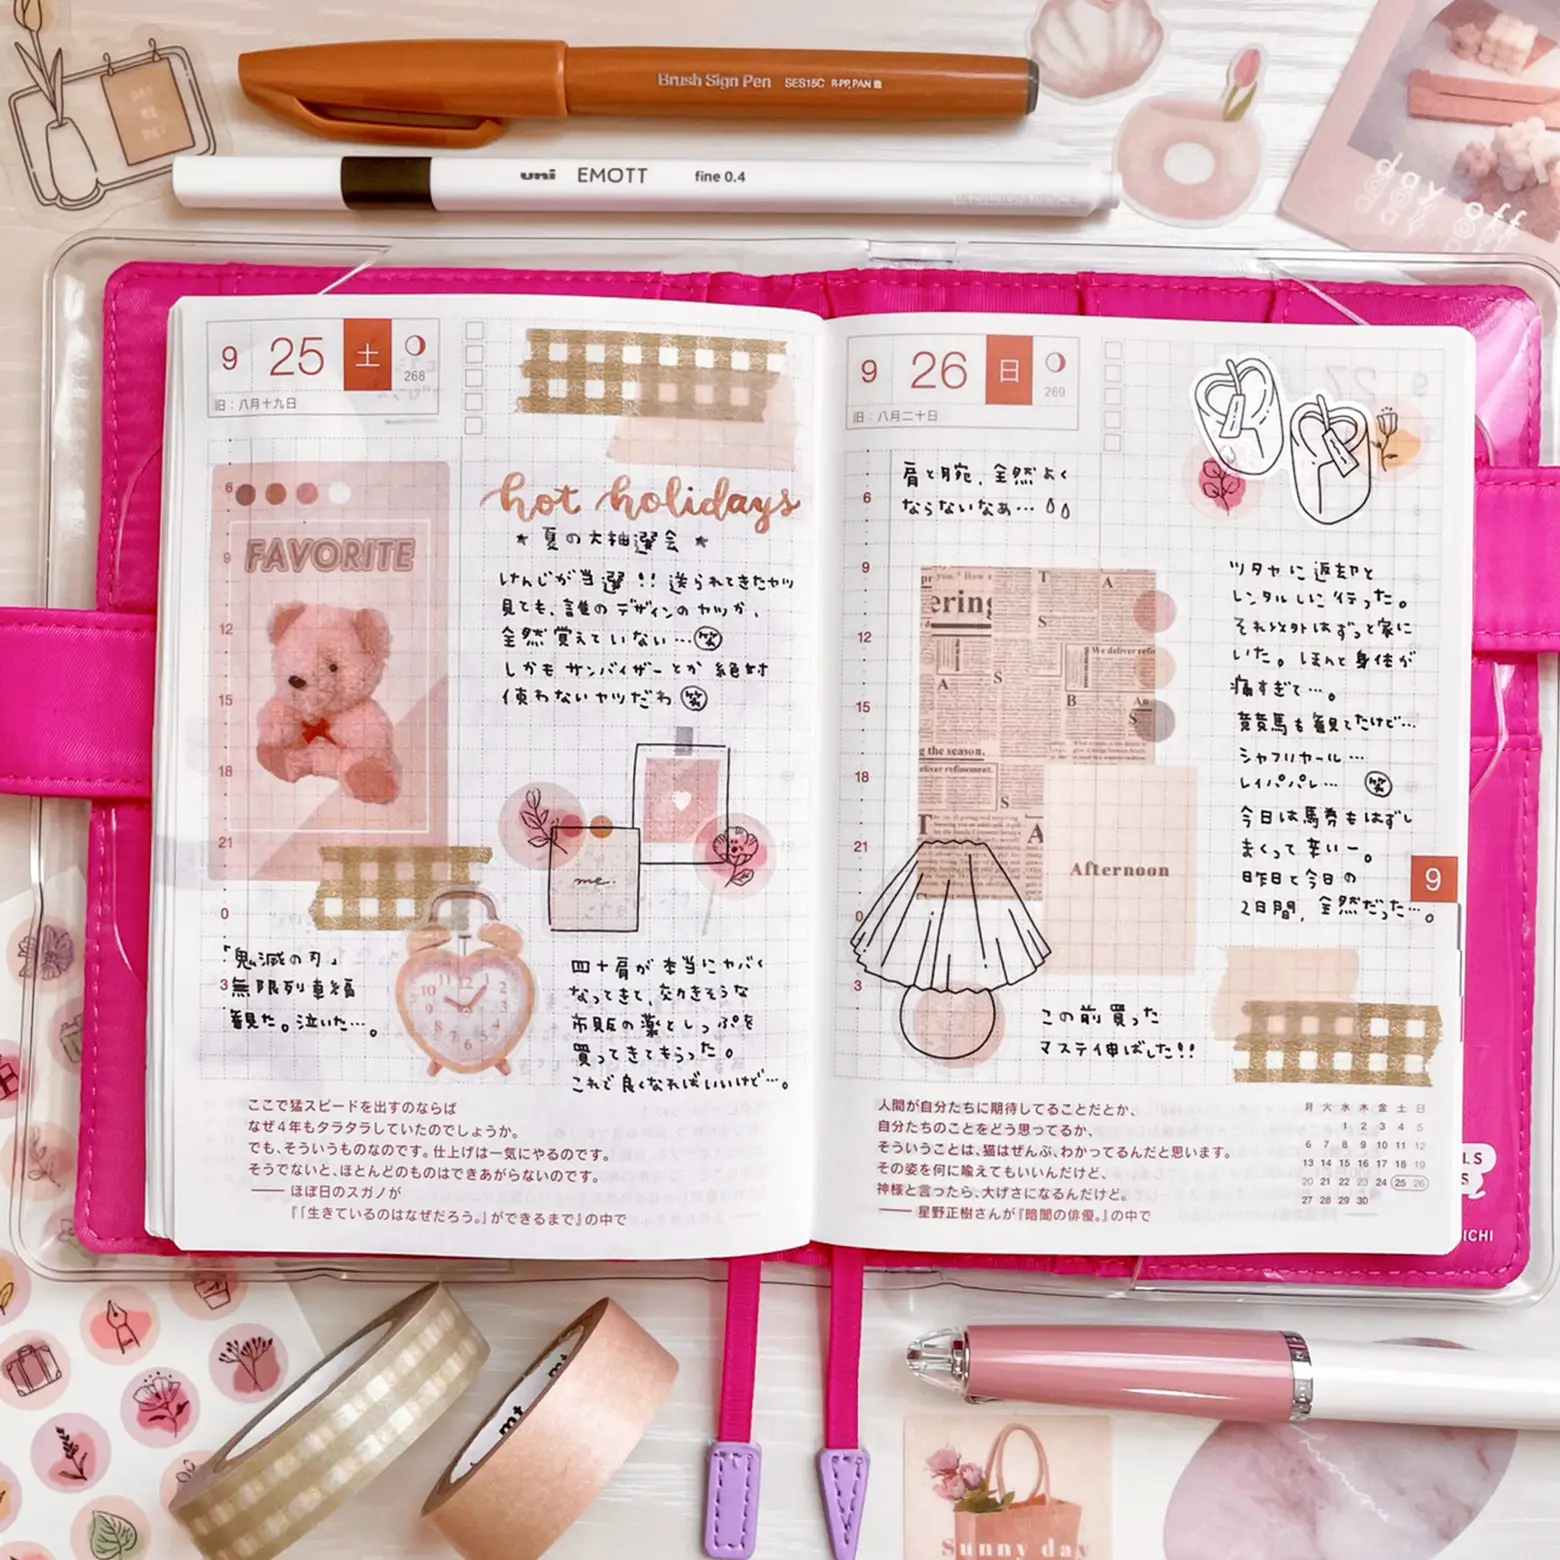 DAY
BY
DAY
Brush Sign Pen SES15C
uni EMOTT fine 0.4
day off
9 25 土
268
旧:八月十九日
FAVORITE
hot holidays
★夏の大抽選会★
けんじが当選!!送られてきたヤツ
見ても、誰のデザインのヤツか、
全然覚えていない…笑
しかもサンバイザーとか絶対
使わないヤツだわ笑
me.
6
9
12
15
18
21
0
3
「鬼滅の刃」
無限列車編
観た。泣いた…。
四十肩が本当にヤバく
なってきて、効きそうな
市販の薬としっぷを
買ってきてもらった。
これで良くなればいいけど…。
ここで猛スピードを出すのならば
なぜ4年もタラタラしていたのでしょうか。
でも、そういうものなのです。仕上げは一気にやるのです。
そうでないと、ほとんどのものはできあがらないのです。
── ほぼ日のスガノが
『「生きているのはなぜだろう。」ができるまで』の中で
9 26 日
269
旧:八月二十日
肩と腕、全然よく
ならないなぁ…
6
9
12
15
18
21
0
3
ering
T
A
S
We deliver refin
A
S
B
An
S
g the season.
eliver refinement.
S
T
A
Afternoon
ツタヤに返却と
レンタルしに行った。
それ以外はずっと家に
いた。ほんと身体が
痛すぎて…。
競馬も観てたけど…
シャフリヤール…
レイパパレ…笑
今日は馬券もはずし
まくって辛いー。
昨日と今日の
2日間、全然だった…。
9
この前買った
マステ伸ばした!!
人間が自分たちに期待してることだとか、
自分たちのことをどう思ってるか、
そういうことは、猫はぜんぶ、わかってるんだと思います。
その姿を何に喩えてもいいんだけど、
神様と言ったら、大げさになるんだけど。
── 星野正樹さんが『暗闇の俳優。』の中で
月 火 水 木 金 土 日
1 2 3 4 5
6 7 8 9 10 11 12
13 14 15 16 17 18 19
20 21 22 23 24 25 26
27 28 29 30
LS
S
ICHI
mt
mt
Sunny day